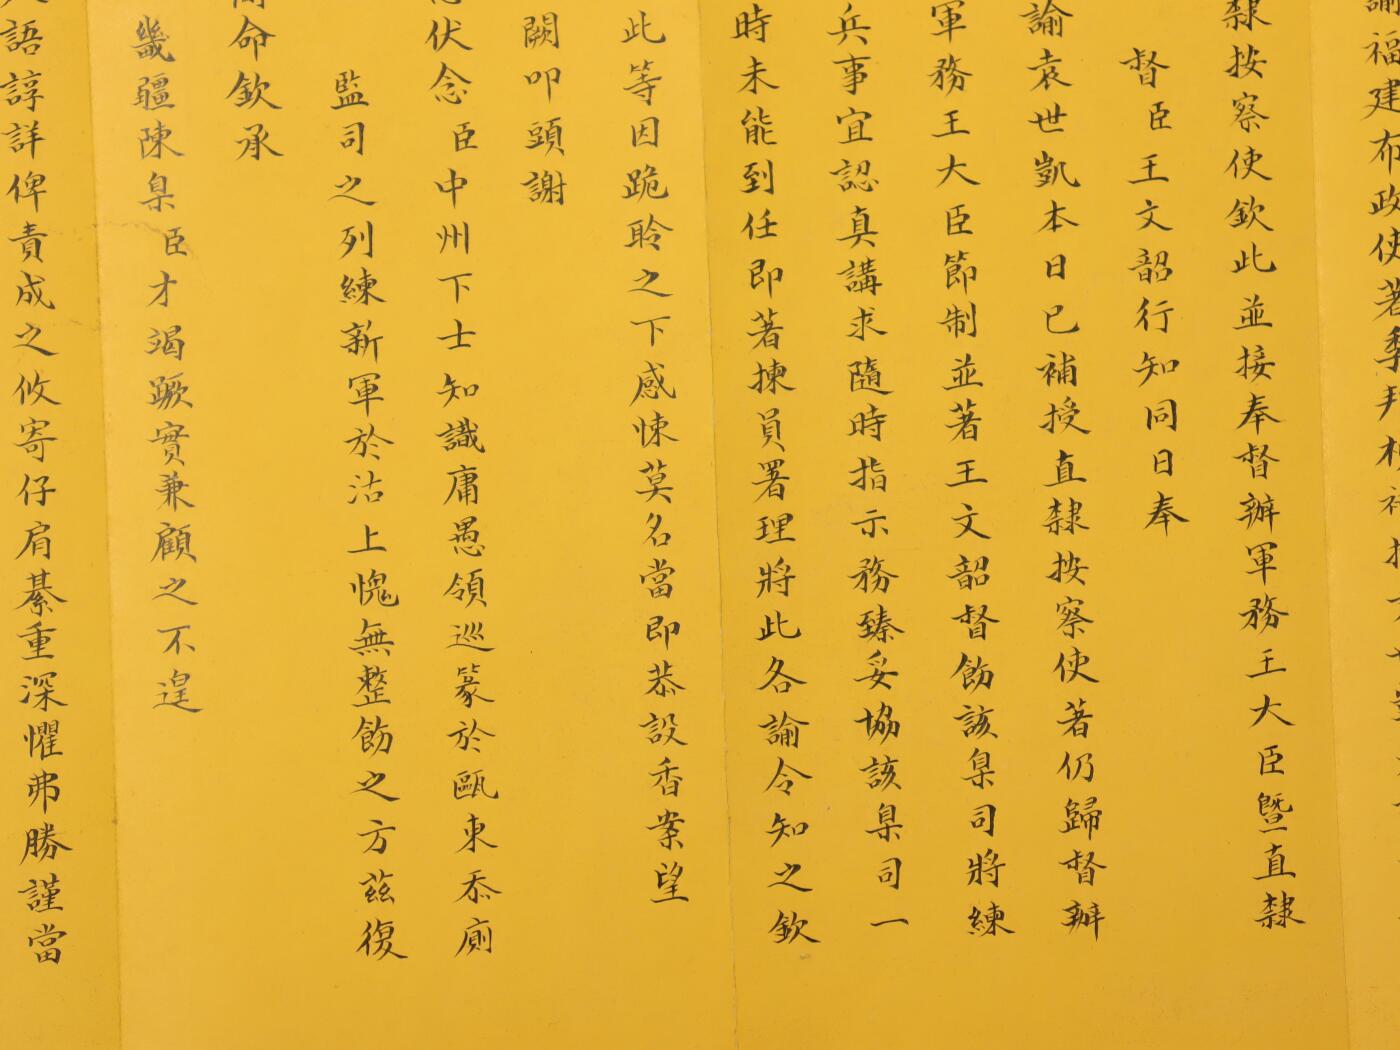 諭福建布政使著季邦楨補授
隸按察使欽此並接奉督辦軍務王大臣暨直隸
督臣王文韶行知同日奉
諭袁世凱本日已補授直隸按察使著仍歸督辦
軍務王大臣節制並著王文韶督飭該臬司將練
兵事宜認真講求隨時指示務臻妥協該臬司一
時未能到任即著揀員署理將此各諭令知之欽
此等因跪聆之下感悚莫名當即恭設香案望
闕叩頭謝
伏念臣中州下士知識庸愚領巡篆於甌東忝廁
監司之列練新軍於沽上愧無整飭之方茲復
命欽承
畿疆陳臬臣才竭蹶實兼顧之不遑
語諄詳俾責成之攸寄仔肩綦重深懼弗勝謹當